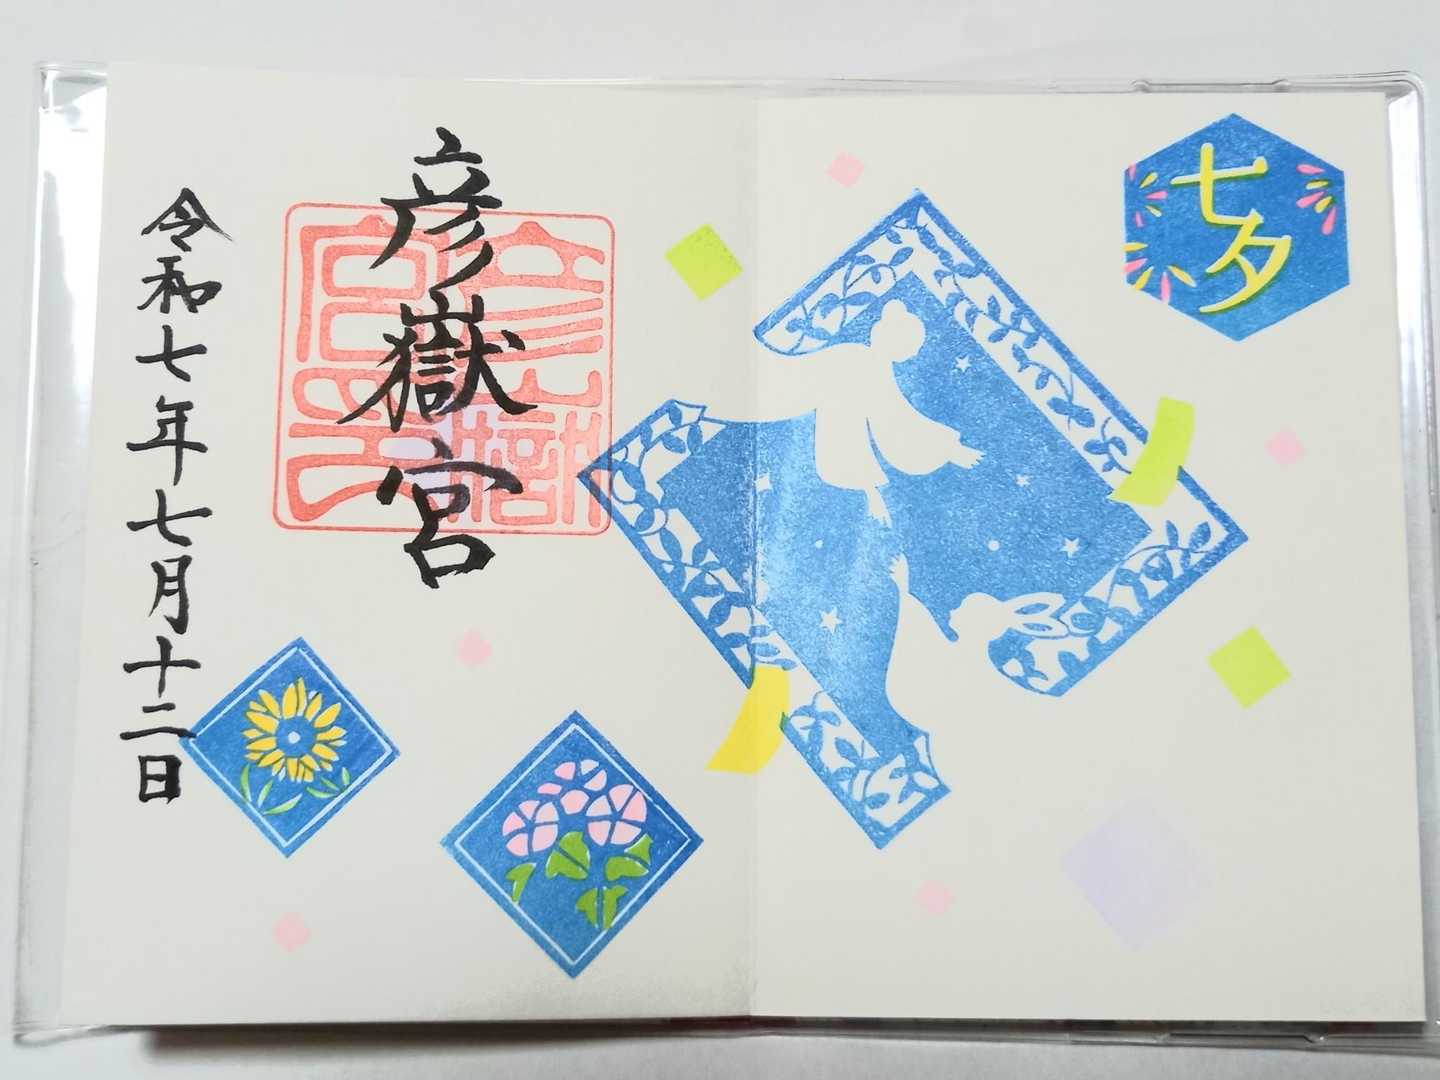 七夕
彦嶽宮
彦嶽宮印
令和七年七月十二日